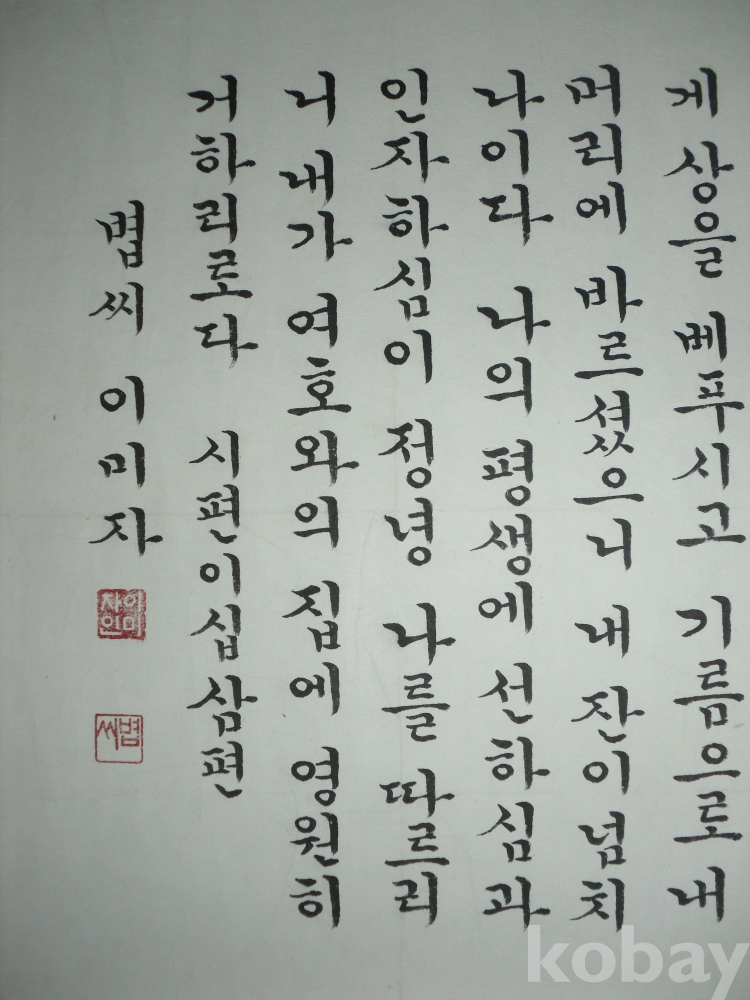 게 상을 베푸시고 기름으로 내
머리에 바르셨으니 내 잔이 넘치
나이다 나의 평생에 선하심과
인자하심이 정녕 나를 따르리
니 내가 여호와의 집에 영원히
거하리로다 시편이십삼편
볍씨 이미자
이미자인
볍씨
kobay